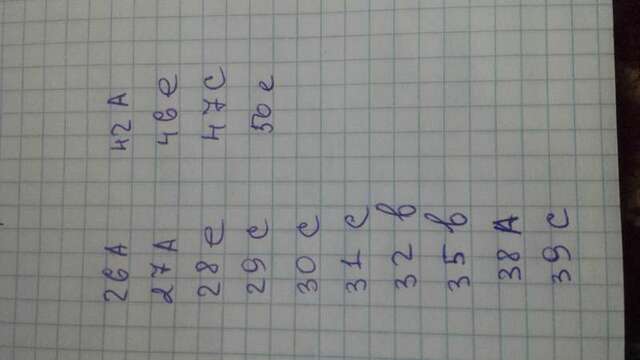 26 A
27 A
28 e
29 c
30 c
31 c
32 b
35 b
38 A
39 c
42 A
46 e
47 c
50 e